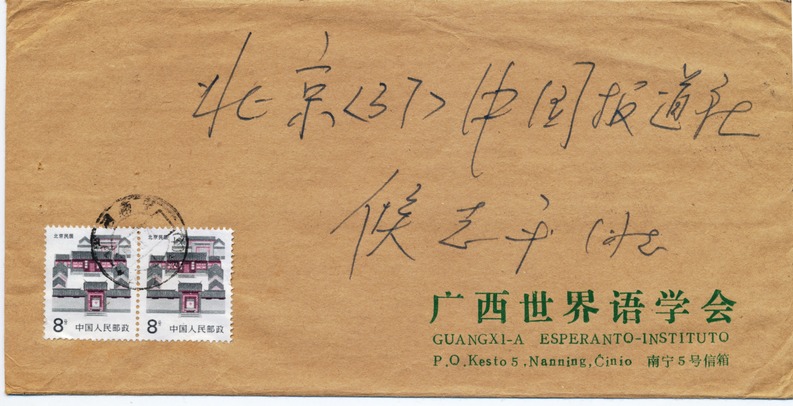 北京〈37〉中国报道社
侯志平同志
北京民居
8分
中国人民邮政
北京民居
8分
中国人民邮政
广西世界语学会
GUANGXI-A ESPERANTO-INSTITUTO
P.O.Kesto 5, Nanning, Ĉinio 南宁5号信箱